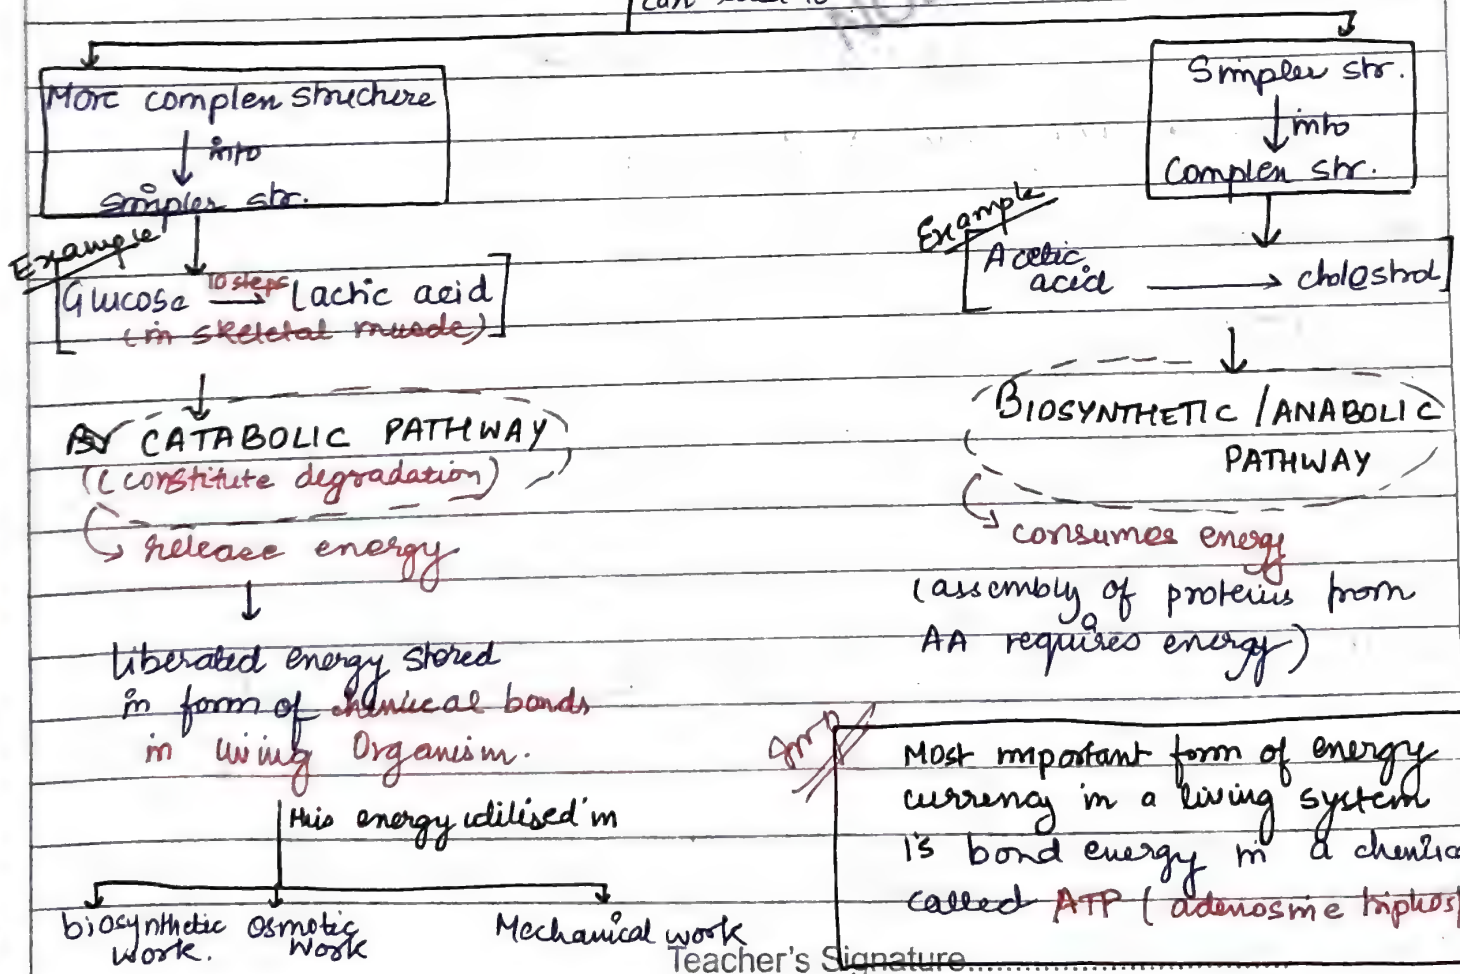 can lead to
NO
More complex structure
into
simpler str.
Example
Glucose 10 steps Lactic acid
(in skeletal muscle)
CATABOLIC PATHWAY
(constitute degradation)
release energy
liberated energy stored
in form of chemical bonds
in living Organism.
this energy utilised in
biosynthetic
work.
osmotic
work
Mechanical work
Simpler str.
into
Complex str.
Example
Acetic
acid
cholestrol
BIOSYNTHETIC /ANABOLIC
PATHWAY
consumes energy
(assembly of proteins from
AA requires energy)
Imp
Most important form of energy
currency in a living system
is bond energy in a chemica
called ATP (adenosine triphos
Teacher's Signature